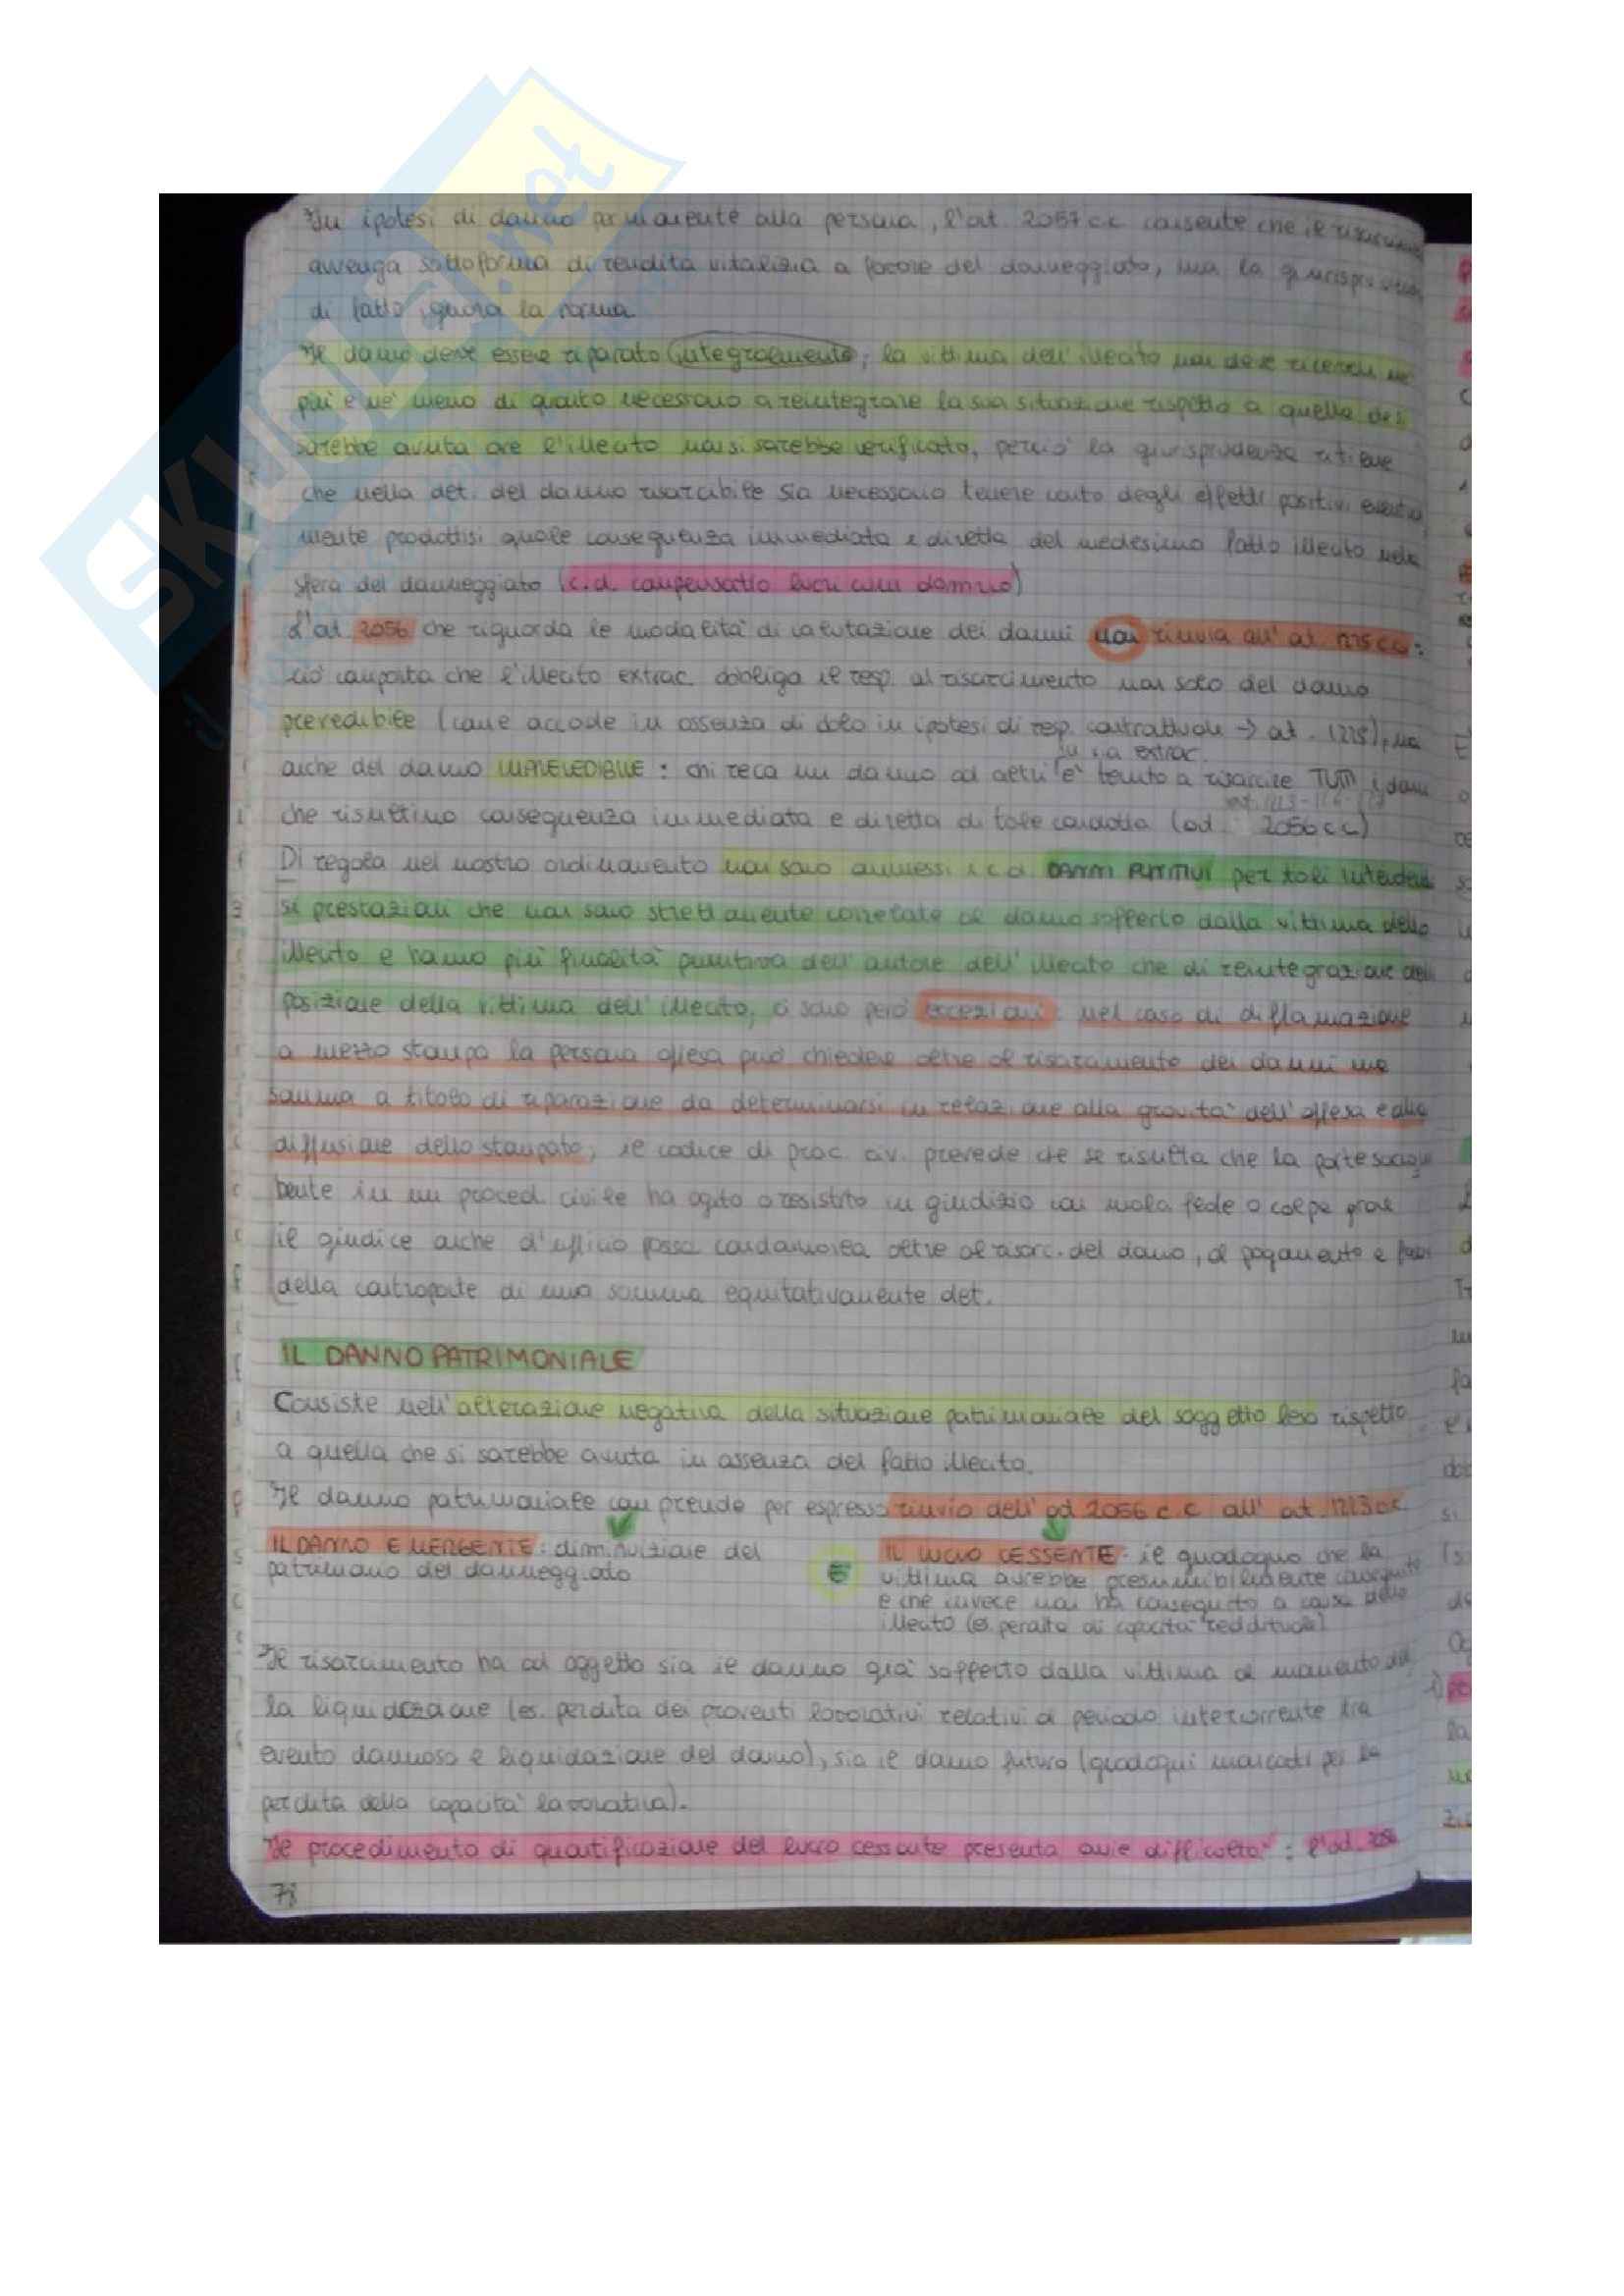 SKUOLA.net
In ipotesi di danno permanente alla persona, l'art. 2057 c.c. consente che il risarcimento
avvenga sottoforma di rendita vitalizia a favore del danneggiato, ma la giurisprudenza
di fatto ignora la norma
Il danno deve essere riparato integralmente; la vittima dell'illecito non deve ricevere né
più e né meno di quanto necessario a reintegrare la sua situazione rispetto a quella che si
sarebbe avuta ove l'illecito non si sarebbe verificato, perciò la giurisprudenza ritiene
che nella det. del danno risarcibile sia necessario tenere conto degli effetti positivi eventual
mente prodottisi quale conseguenza immediata e diretta del medesimo fatto illecito nella
sfera del danneggiato (c.d. compensatio lucri cum damno)
L'art 2056 che riguarda le modalità di valutazione dei danni non rinvia all'art. 1225 cc:
ciò comporta che l'illecito extrac. obbliga il resp. al risarcimento non solo del danno
prevedibile (come accade in assenza di dolo in ipotesi di resp. contrattuale → art. 1225), ma
in via extrac.
anche del danno IMPREVEDIBILE: chi reca un danno ad altri è tenuto a risarcire TUTTI i danni
che risultino conseguenza immediata e diretta di tale condotta (art. 2056 cc)
Di regola nel nostro ordinamento non sono ammessi i c.d. DANNI PUNITIVI per tali intenden
si prestazioni che non sono strettamente correlate al danno sofferto dalla vittima dello
illecito e hanno più finalità punitiva dell'autore dell'illecito che di reintegrazione della
posizione della vittima dell'illecito, ci sono però eccezioni: nel caso di diffamazione
a mezzo stampa la persona offesa può chiedere oltre al risarcimento dei danni una
somma a titolo di riparazione da determinarsi in relazione alla gravità dell'offesa e alla
diffusione dello stampato; il codice di proc. civ. prevede che se risulta che la parte soccom
bente in un proced. civile ha agito o resistito in giudizio con mala fede o colpa grave
il giudice anche d'ufficio possa condannarla oltre al risarc. del danno, al pagamento a favore
della controparte di una somma equitativamente det.
IL DANNO PATRIMONIALE
Consiste nell'alterazione negativa della situazione patrimoniale del soggetto leso rispetto
a quella che si sarebbe avuta in assenza del fatto illecito.
Il danno patrimoniale comprende per espresso rinvio dell'art 2056 c.c all'art. 1223 cc
IL DANNO EMERGENTE: diminuzione del
patrimonio del danneggiato
E
IL LUCRO CESSENTE: il guadagno che la
vittima avrebbe presumibilmente conseguito
e che invece non ha conseguito a causa dello
illecito (es. perdita di capacità reddituale)
Il risarcimento ha ad oggetto sia il danno già sofferto dalla vittima al momento del
la liquidazione (es. perdita dei proventi lavorativi relativi al periodo intercorrente tra
evento dannoso e liquidazione del danno), sia il danno futuro (guadagni mancati per la
perdita della capacità lavorativa).
Il procedimento di quantificazione del lucro cessante presenta ovvie difficoltà: l'art. 2056
78